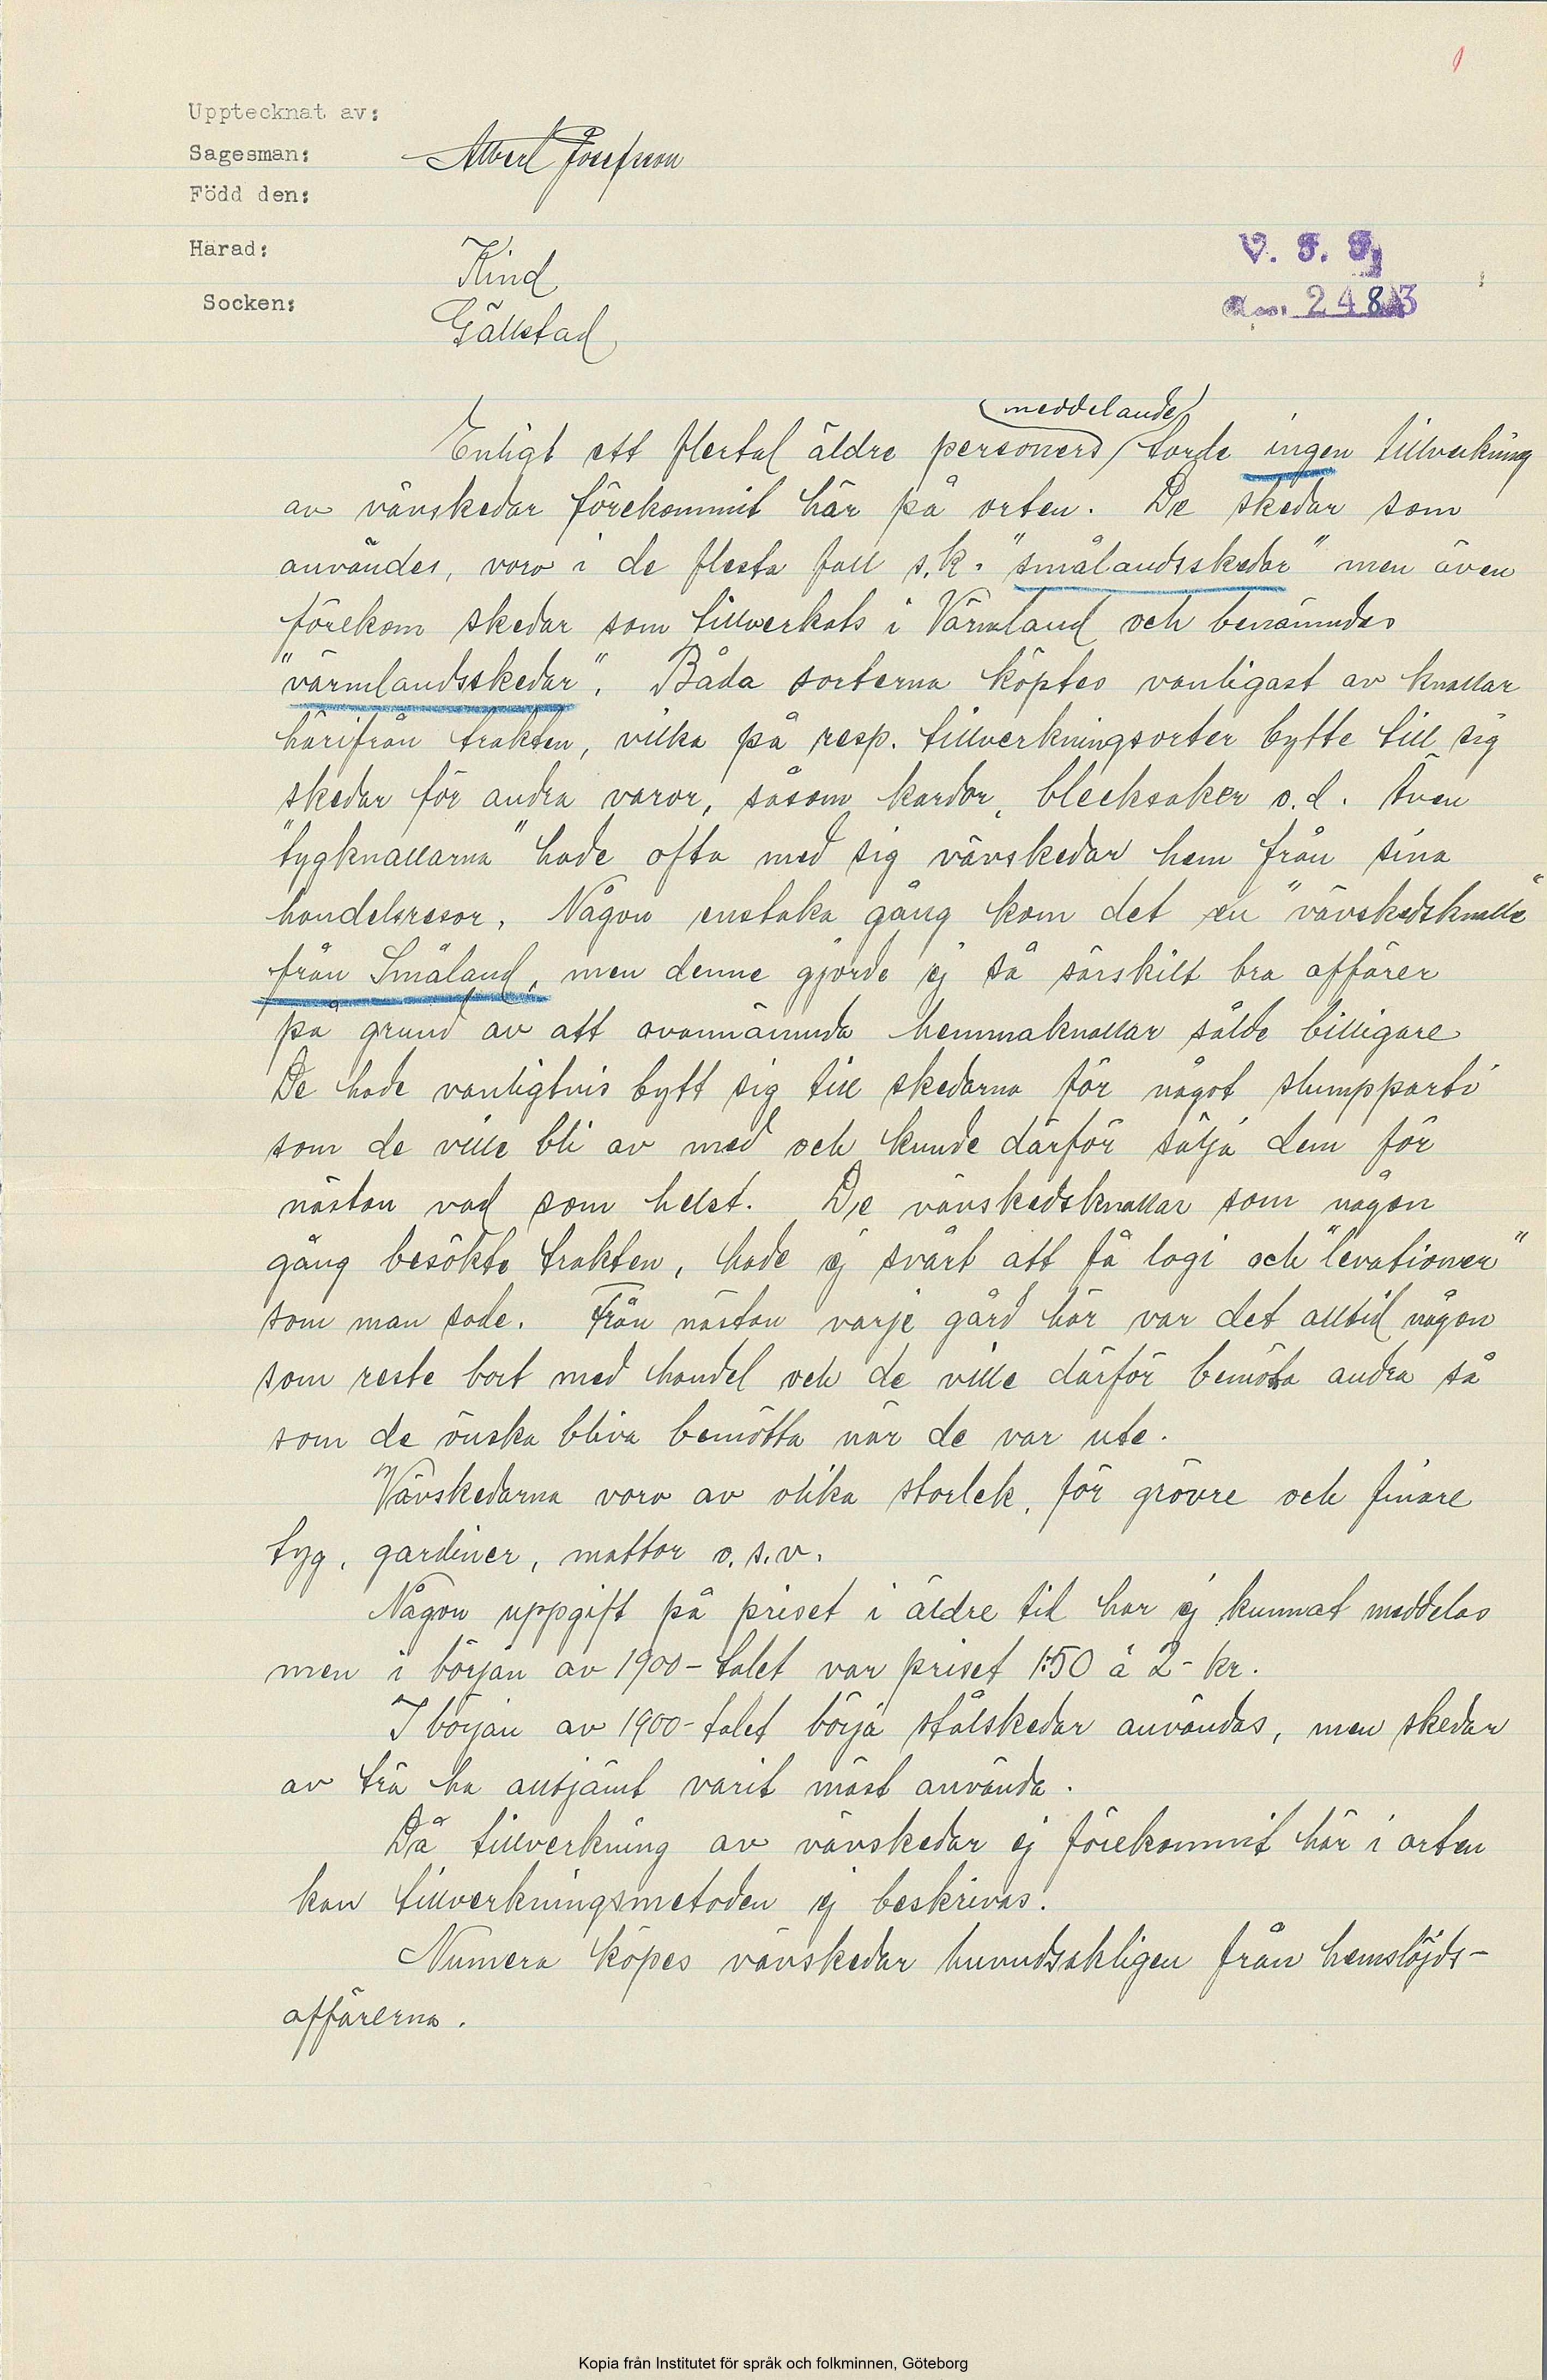 Upptecknat av:
Sagesman: Albert Josefsson
Född den:
Härad: Kind
Socken: Gällstad
V. F. F.
acc. 2483
meddelande
Enligt ett flertal äldre personers torde ingen tillverkning
av vävskedar förekommit här på orten. De skedar som
användes, voro i de flesta fall s.k. "smålandsskedar" men även
förekom skedar som tillverkats i Värmland och benämndes
"värmlandsskedar". Båda sorterna köptes vanligast av knallar
härifrån trakten, vilka på resp. tillverkningsorter bytte till sig
skedar för andra varor, såsom kardor, blecksaker o.d. Även
"tygknallarna" hade ofta med sig vävskedar hem från sina
handelsresor. Någon enstaka gång kom det en "vävskedsknalle"
från Småland, men denne gjorde ej så särskilt bra affärer
på grund av att ovannämnda hemmaknallar sålde billigare
De hade vanligtvis bytt sig till skedarna för något slumpparti
som de ville bli av med och kunde därför sälja dem för
nästan vad som helst. De vävskedsknallar som någon
gång besökte trakten, hade ej svårt att få logi och "levationer"
som man sade. Från nästan varje gård här var det alltid någon
som reste bort med handel och de ville därför bemöta andra så
som de önska bliva bemötta när de var ute.
Vävskedarna voro av olika storlek, för grövre och finare
tyg, gardiner, mattor o.s.v.
Någon uppgift på priset i äldre tid har ej kunnat meddelas
men i början av 1900-talet var priset 1:50 à 2- kr.
I början av 1900-talet börja stålskedar användas, men skedar
av trä ha alltjämt varit mäst använda.
Då tillverkning av vävskedar ej förekommit här i orten
kan tillverkningsmetoden ej beskrivas.
Numera köpes vävskedar huvudsakligen från hemslöjds-
affärerna.
Kopia från Institutet för språk och folkminnen, Göteborg